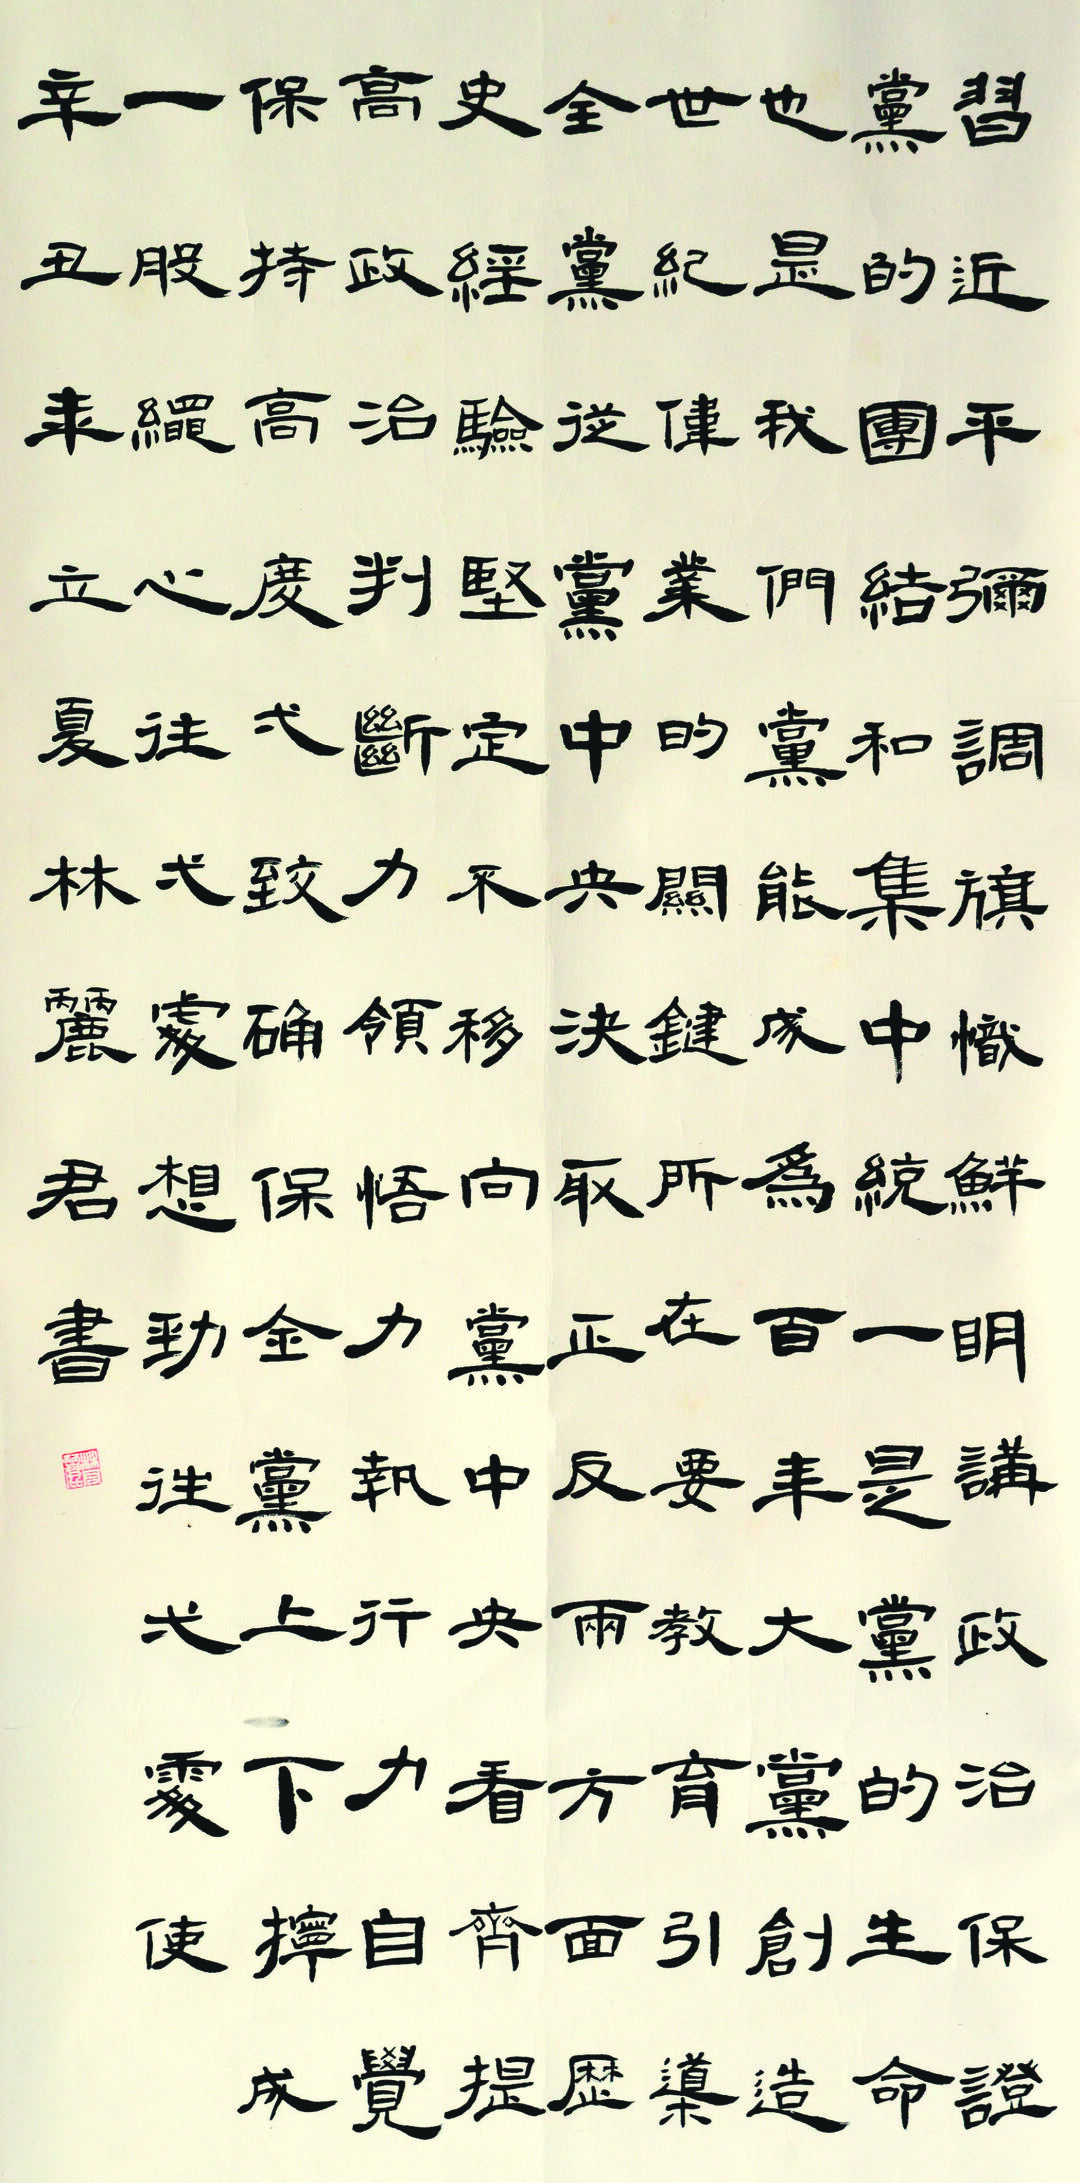 習近平彌調旗幟鮮明講政治保證
黨的團結和集中統一是黨的生命
也是我們黨能成為百年大黨創造
世紀偉業的關鍵所在要教育引導
全黨從黨中央決取正反兩方面歷
史經驗堅定不移向黨中央看齊提
高政治判斷力領悟力執行力自覺
保持高度弌致确保金黨上下擰成
一股繩心往弌處想勁往弌處使
辛丑年立夏林麗君書